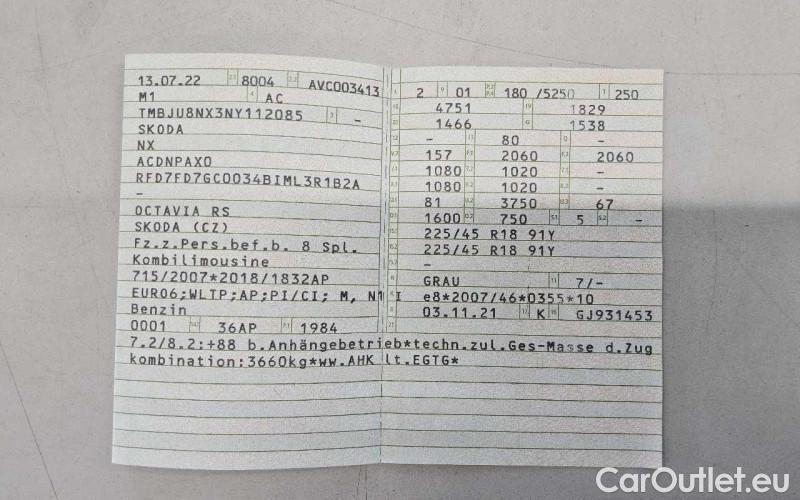 13.07.22 2.1 8004 2.2 AVC003413
M1 4 AC
TMBJU8NX3NY112085 3 -
SKODA
NX
ACDNPAX0
RFD7FD7GC0034BIML3R1B2A
-
OCTAVIA RS
SKODA (CZ)
Fz.z.Pers.bef.b. 8 Spl.
Kombilimousine
715/2007*2018/1832AP
EURO6;WLTP;AP;PI/CI; M, N1 I
Benzin
0001 36AP 1984
2 9 01 180 /5250 T 250
4751 19 1829
1466 G 1538
- 80 -
157 2060 2060
1080 1020 -
1080 1020 -
81 3750 67
1600 750 S.1 5 S.2 -
225/45 R18 91Y
225/45 R18 91Y
-
GRAU 11 7/-
e8*2007/46*0355*10
03.11.21 K GJ931453
7.2/8.2:+88 b.Anhängebetrieb*techn.zul.Ges-Masse d.Zug
kombination:3660kg*ww.AHK lt.EGTG*
CarOutlet.eu